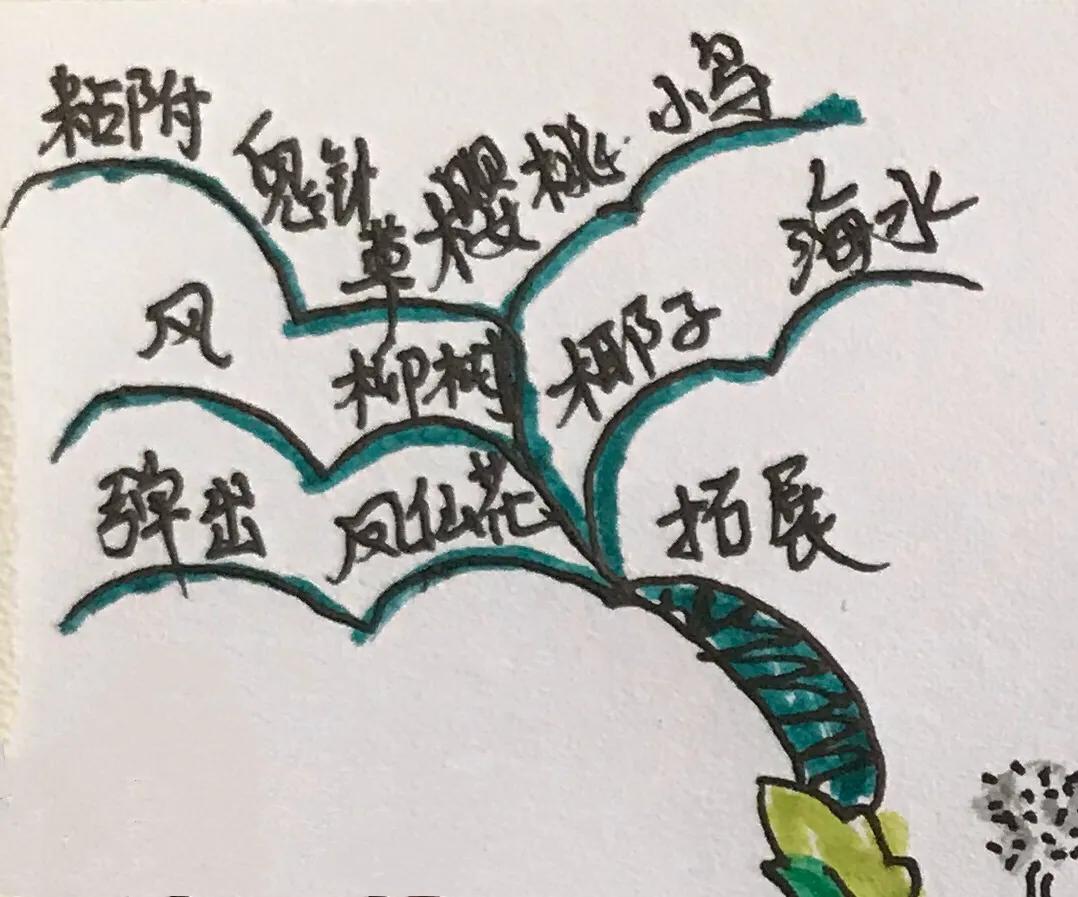 拓展
凤仙花
弹出
柳树
风
鬼针草
粘附
樱桃
小鸟
椰子
海水